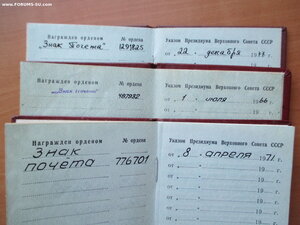 www.FORUMS-SU.com
Награжден орденом № ордена Указом Президиума Верховного Совета СССР
„Знак Почета“ 1291825 от „ 22 “ декабря 19
Награжден орденом № ордена Указом Президиума Верховного Совета СССР
„Знак Почета“ от „ 1 “ июля 1966 г.
Награжден орденом № ордена Указом Президиума Верховного Совета СССР
Знак почёта 776701 от „ 8 “ апреля 1971 г.
от „ “ 19 г.
от „ “ 19 г.
от „ “ 19 г.
от „ “ 19 г.
от „ “ 19 г.